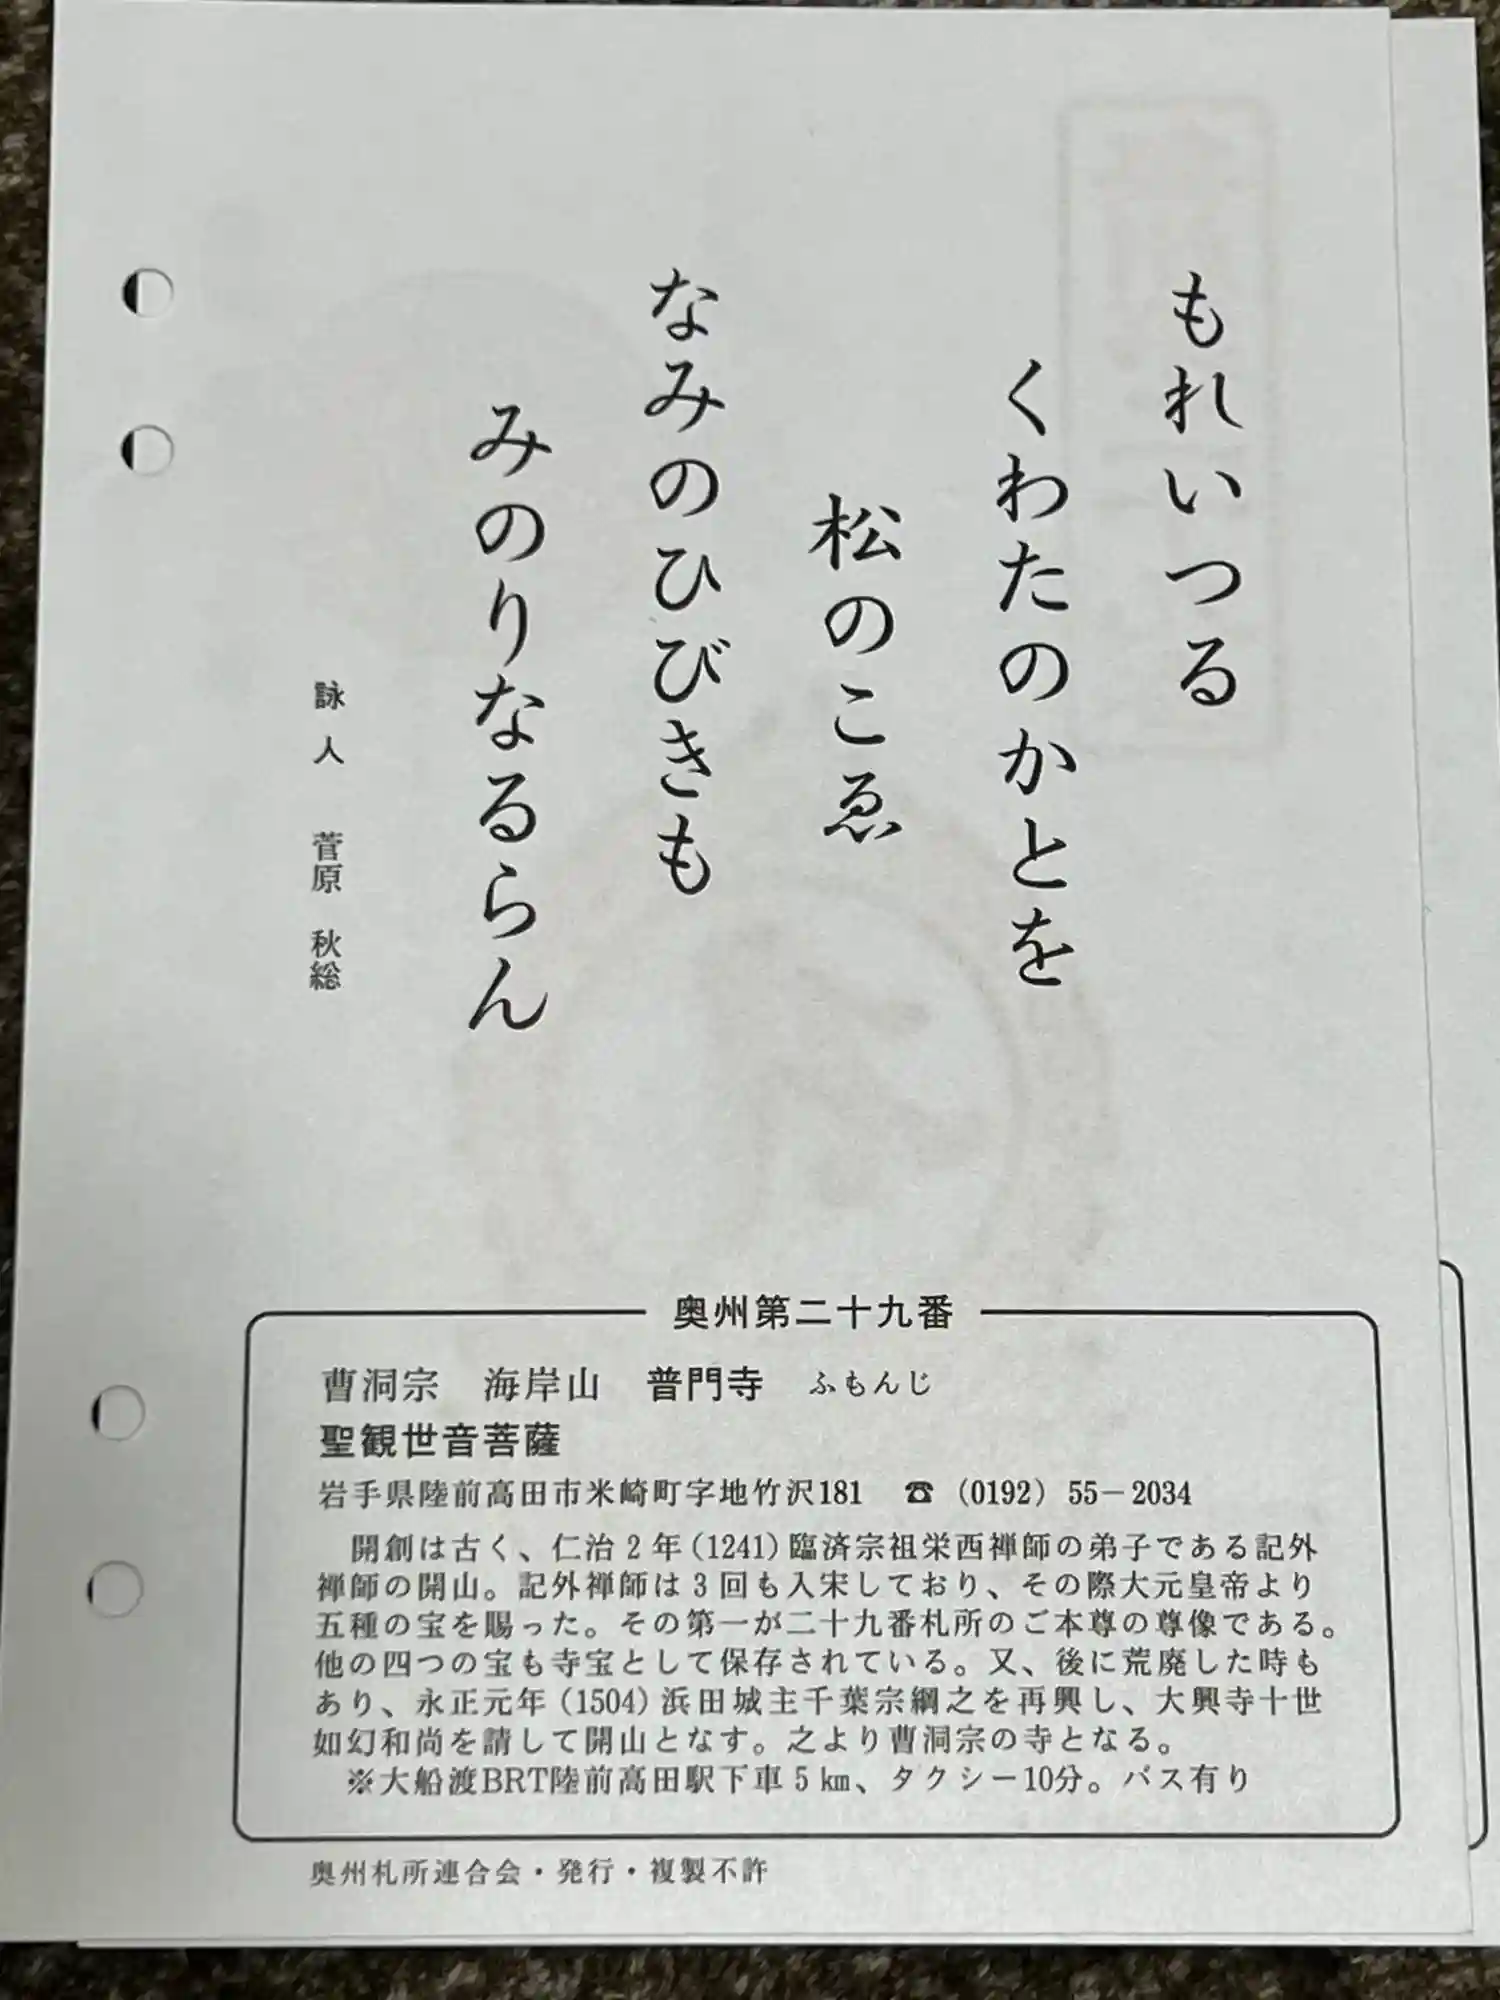 もれいつる
くわたのかとを
松のこゑ
なみのひびきも
みのりなるらん
詠人 菅原 秋総
奥州第二十九番
曹洞宗 海岸山 普門寺 ふもんじ
聖観世音菩薩
岩手県陸前高田市米崎町字地竹沢181 ☎ (0192) 55－2034
開創は古く、仁治２年(1241)臨済宗祖栄西禅師の弟子である記外
禅師の開山。記外禅師は３回も入宋しており、その際大元皇帝より
五種の宝を賜った。その第一が二十九番札所のご本尊の尊像である。
他の四つの宝も寺宝として保存されている。又、後に荒廃した時も
あり、永正元年(1504)浜田城主千葉宗綱之を再興し、大興寺十世
如幻和尚を請して開山となす。之より曹洞宗の寺となる。
※大船渡BRT陸前高田駅下車５㎞、タクシー10分。バス有り
奥州札所連合会・発行・複製不許